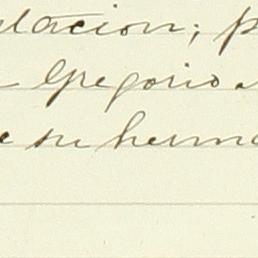 ulacion; p
Gregorio
e su herma